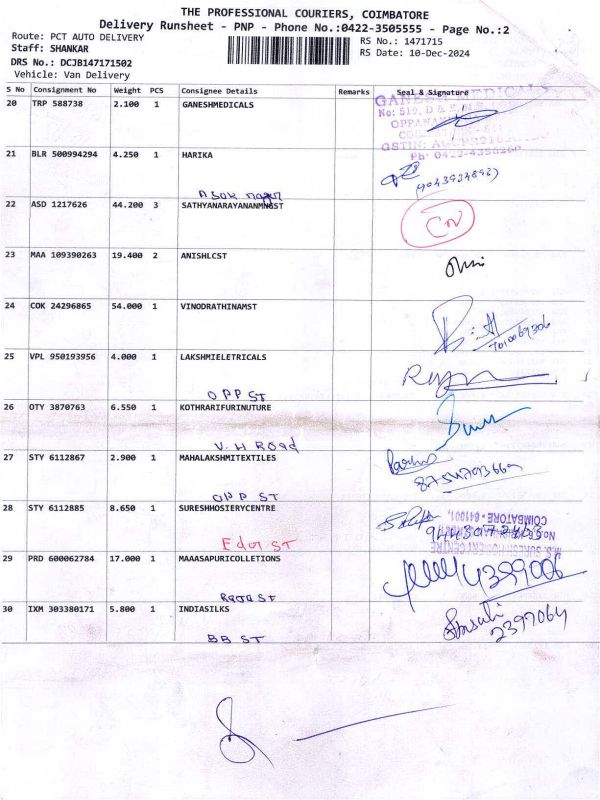 THE PROFESSIONAL COURIERS, COIMBATORE
Delivery Runsheet - PNP - Phone No.:0422-3505555 - Page No.:2
Route: PCT AUTO DELIVERY
RS No.: 1471715
Staff: SHANKAR
RS Date: 10-Dec-2024
DRS No.: DCJB147171502
Vehicle: Van Delivery
S No Consignment No Weight PCS Consignee Details Remarks Seal & Signature
20 TRP 588738 2.100 1 GANESHMEDICALS
GANESH MEDICALS
21 BLR 500994294 4.250 1 HARIKA
ASOK nagar
22 ASD 1217626 44.200 3 SATHYANARAYANANMNGST
23 MAA 109390263 19.400 2 ANISHLCST
24 COK 24296865 54.000 1 VINODRATHINAMST
7010069306
25 VPL 950193956 4.000 1 LAKSHMIELETRICALS
OPP ST
26 OTY 3870763 6.550 1 KOTHRARIFURINUTURE
V.H ROad
27 STY 6112867 2.900 1 MAHALAKSHMITEXTILES
8754793669
OPP ST
28 STY 6112885 8.650 1 SURESHHOSIERYCENTRE
COIMBATORE - 641001,
Edar ST
29 PRD 600062784 17.000 1 MAAASAPURICOLLETIONS
4399006
Raja ST
30 IXM 303380171 5.800 1 INDIASILKS
2397064
BB ST